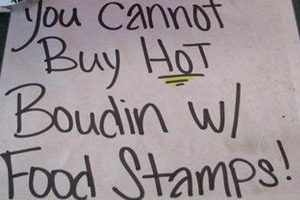 You Cannot
Buy HOT
Boudin w/
Food Stamps!